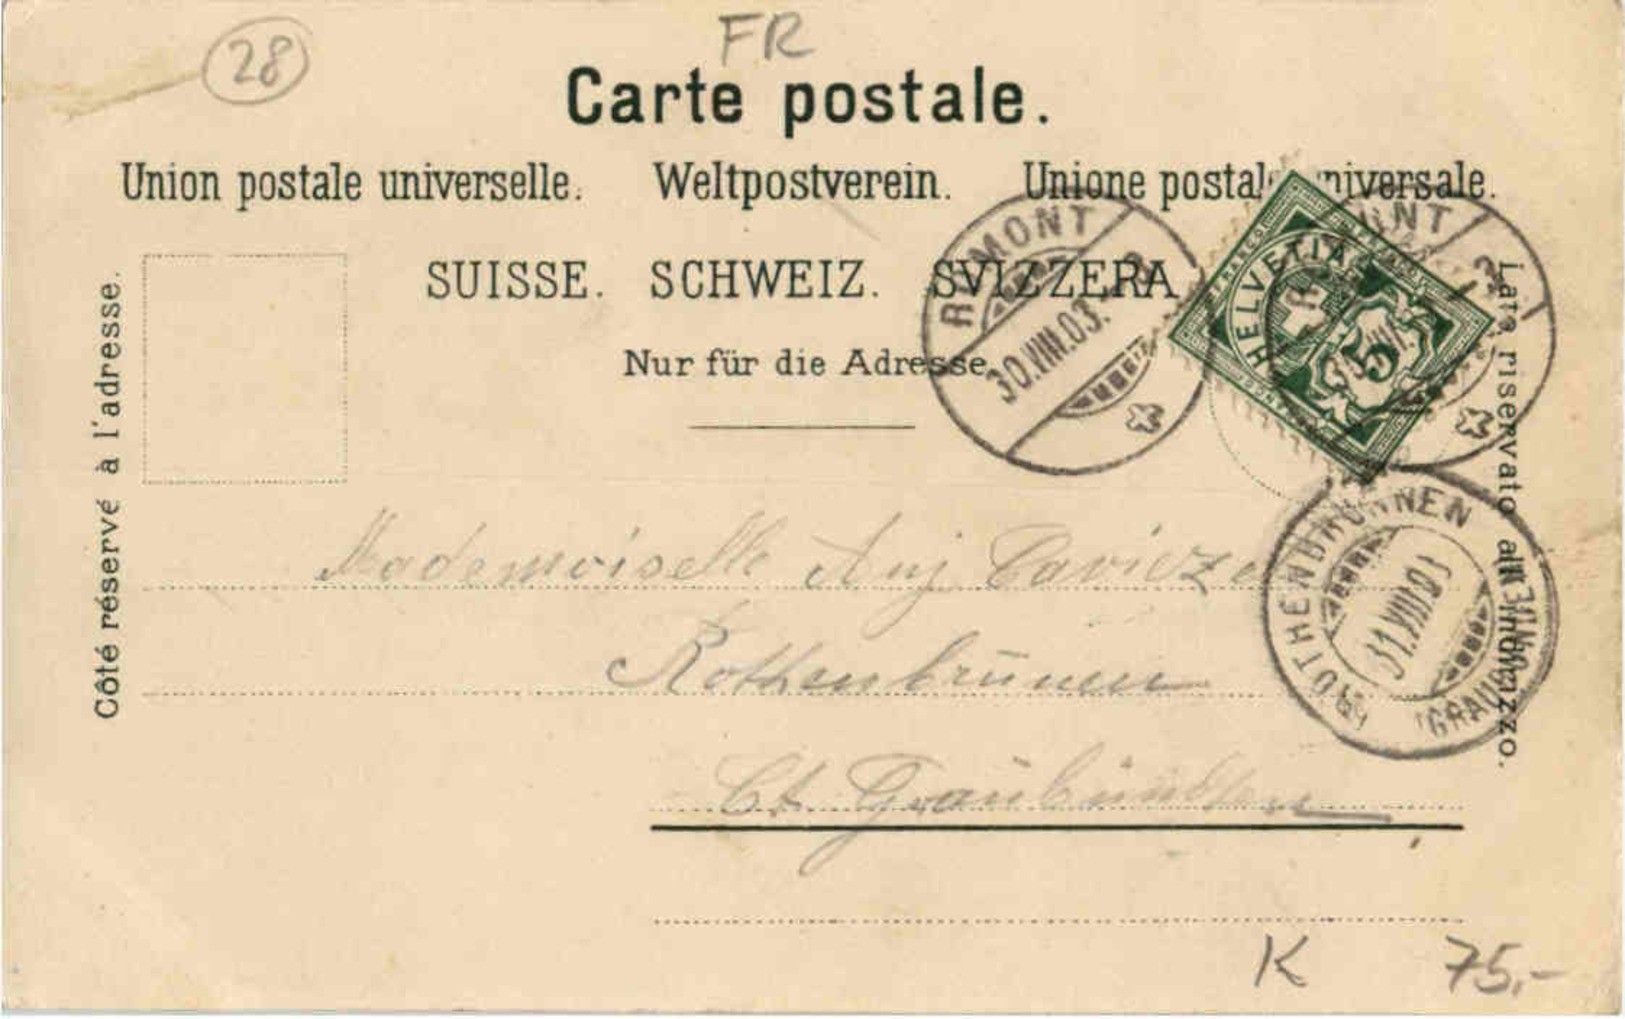 28
FR
Carte postale.
Union postale universelle. Weltpostverein. Unione postale universale.
SUISSE. SCHWEIZ. SVIZZERA
Nur für die Adresse.
Côté réservé à l'adresse.
Lato riservato all'indirizzo.
ROMONT
30.VIII.03.
HELVETIA
5
ROTHENBRUNNEN
31.VIII.03
(GRAUBÜNDEN)
Mademoiselle
Rothenbrünnen
Ct. Graübünden
K 75.-